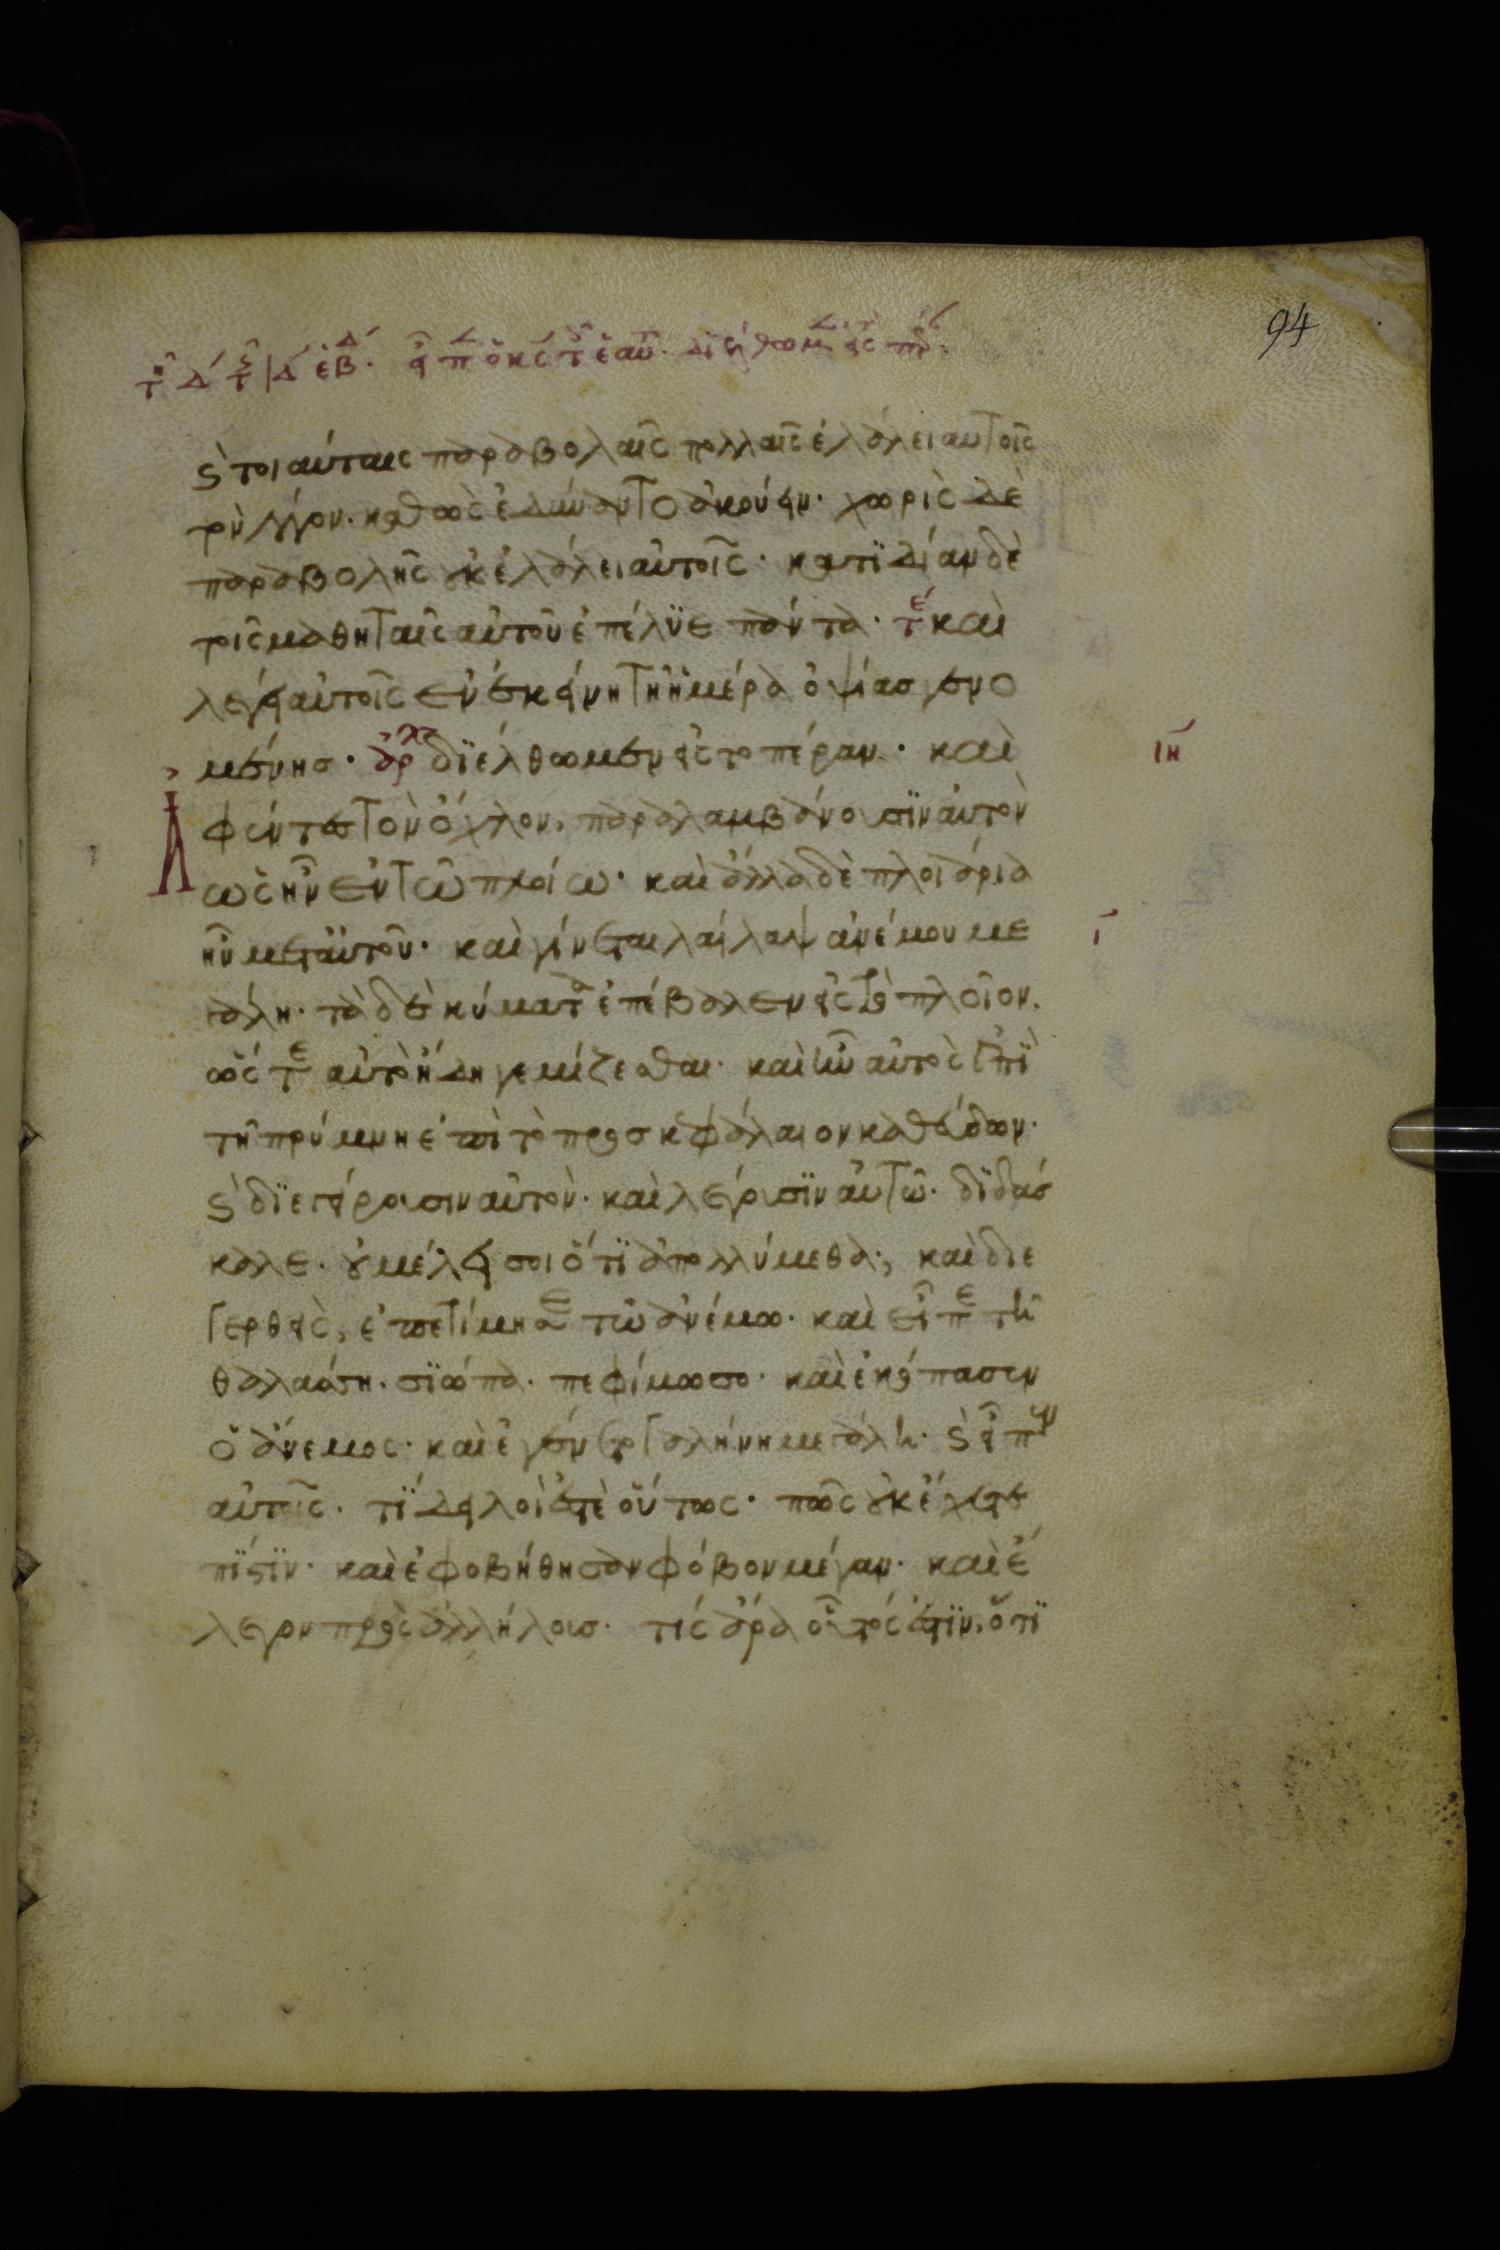 94
τῆ δ´ τ ς̑ | δ´ ἑβδ´. εἶπ ὁ κς τ ἑαυ. διέλθωμ εἰς πέρ.
ϛ̀ τοιαύταις παραβολαῖς πολλαῖς ἐλάλει αυτοῖς
τὸν λόγον· καθὼς ἐδύναντο ἀκούειν· χωρὶς δὲ
παραβολῆς οὐκ ἐλάλει αὐτοῖς· κατϊδίαν δὲ
τοῖς μαθηταῖς αὐτοῦ ἐπέλυε πάντα· τέ καὶ
λέγει αὐτοῖς ἐν ἐκείνη τῆ ἡμέρα ὀψίας γενο
μένησ· ἀρχ διέλθωμεν εἰς το πέραν· καὶ
ιη
Ἀφέντες τὸν ὄχλον, παραλαμβάνουσϊν αὐτὸν
ὡς ἦν ἐν τῶ πλοίω· καὶ ἄλλα δὲ πλοιάρια
ἦν μετ αὐτοῦ· καὶ γίνεται λαίλαψ ἀνέμου με
ι
γάλη· τὰ δὲ κύματα ἐπέβαλεν εἰς τὸ πλοῖον.
ὥστε αὐτὸ ἤδη γεμίζεσθαι· καὶ ἦν αὐτὸς ἐπϊ
τῆ πρύμνη ἐπὶ τὸ προσκεφάλαιον καθεύδων·
ϛ̀ διεγείρουσιν αὐτὸν· καὶ λέγουσϊν αὐτῶ· δϊδάσ
καλε· οὐ μέλει σοι ὅτϊ ἀπολλύμεθα; καὶ διε
γερθεὶς, ἐπετίμησε τῶ ἀνέμω· καὶ εἶπε τῆ
θαλάσση· σϊώπα· πεφίμωσο· καὶ ἐκόπασεν
ὁ ἄνεμος· καὶ ἐγένετο γαλήνη μεγάλη· ϛ̀ εἶπεν
αὐτοῖς· τί δειλοί ἐστὲ οὕτως· πῶς οὐκ ἔχετε
πίστϊν· καὶ ἐφοβήθησαν φόβον μέγαν· καὶ ἔ
λεγον πρὸς ἀλλήλουσ· τίς ἄρα οὗτός ἐστϊν, ὅτϊ